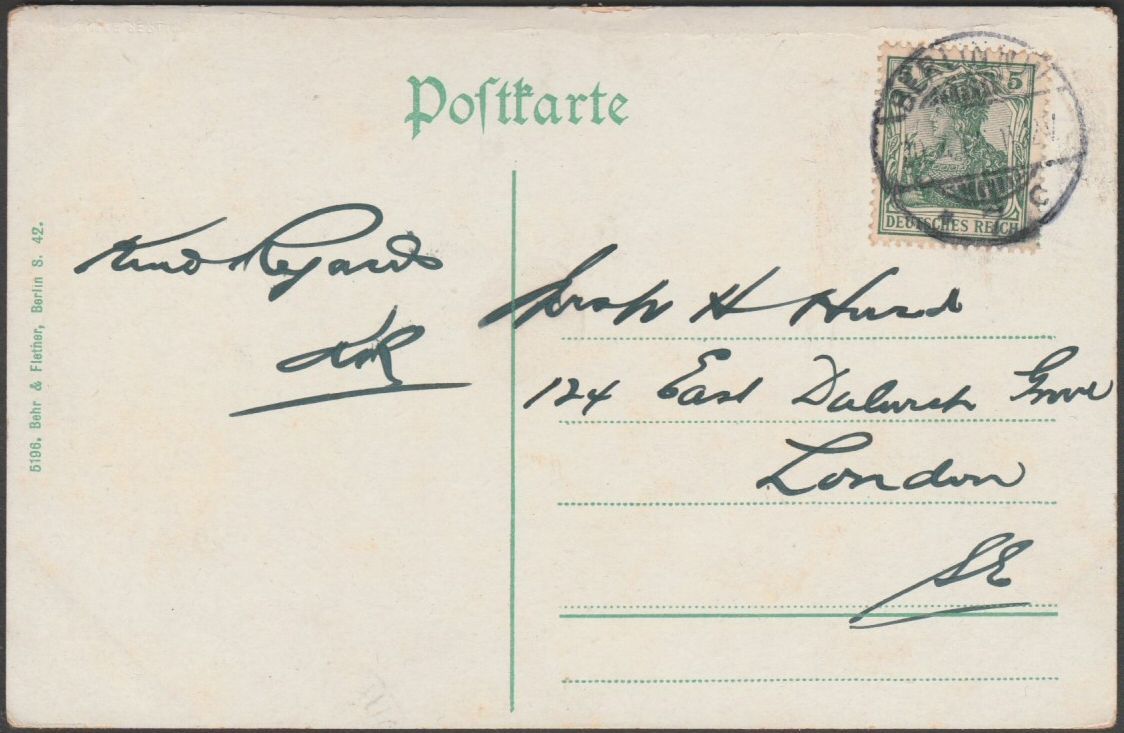 Postkarte
5
DEUTSCHES REICH
BERLIN
5196. Behr & Flether, Berlin S. 42.
Kind Regards
H Hurd
124 East Dulwich Grove
London
SE